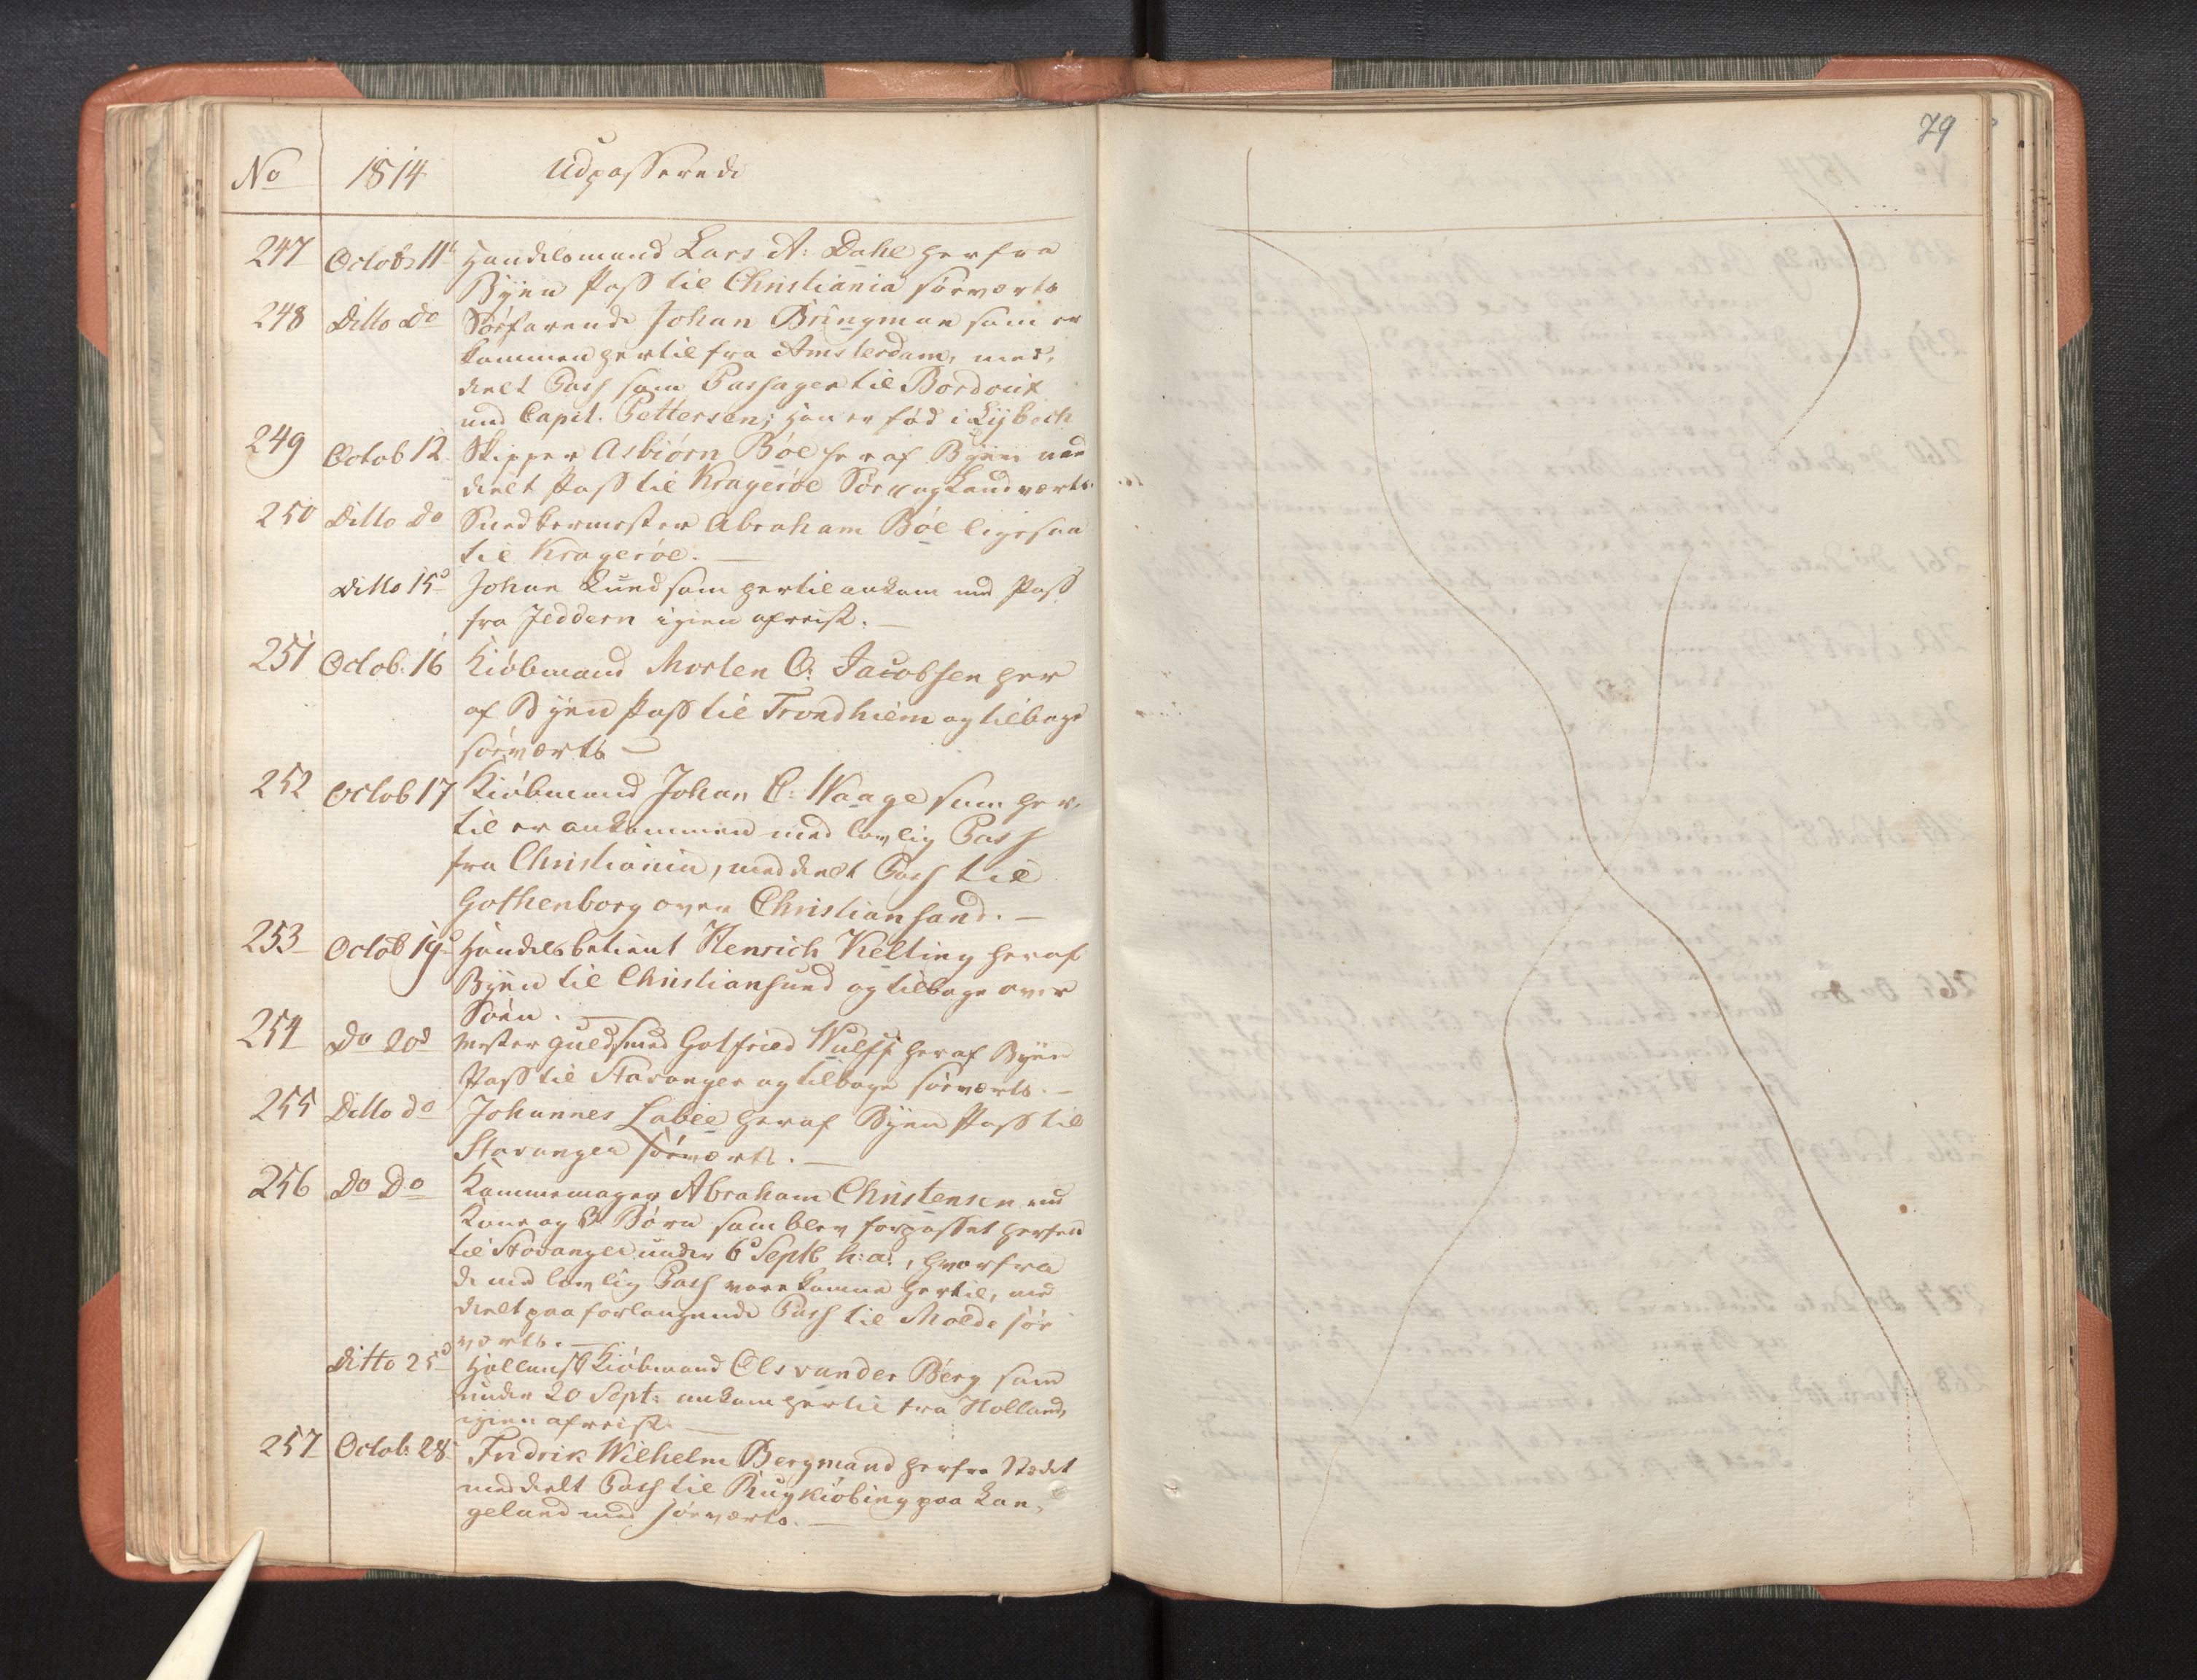 79
No 1814 Udpasserende
247 Octob 11te Handelsmand Lars A: Dahl herfra
Byen Pass til Christiania söeværts
248 Ditto Do Söefarende Johan Brüngman som er
kommen hertil fra Amsterdam, med,
delt Pass som Passager til Bordoux
med Capit. Pettersen; han er föd i Lybech
249 Octob 12 Skipper Asbiörn Böe heraf Byen med
delt Pass til Krageröe Söe og Landværts
250 Ditto Do Snedkermester Abraham Böe ligesaa
til Krageröe. —
Ditto 15d Johan Lund som hertil ankom med Pass
fra Jeddern igien afreist. —
251 Octob. 16 Kiöbmand Morten C. Jacobsen her
af Byen Pass til Trondhiem og tilbage
söeværts
252 Octob 17 Kiöbmand Johan C: Waage som her,
til er ankommen med lovlig Pass
fra Christiania, meddelt Pass til
Gothenborg over Christiansand. —
253 Octob 19d Handelsbetient Henrich Kelting heraf
Byen til Christiansund og tilbage over
Söen. —
254 Do 20d Mester Guldsmed Gotfried Wulff heraf Byen
Pass til Stavanger og tilbage söeværts. —
255 Ditto do Johannes Labee heraf Byen Pass til
Stavanger söeværts. —
256 Do Do Kammemager Abraham Christensen med
Kone og 3 Börn som blev forpasset herfra
til Stavanger under 6d Septb h: a:, hvorfra
de med lovlig Pass vare komne hertil, med
delt paa forlangende Pass til Molde söe
værts. —
Ditto 25d Hollandsk Kiöbmand Ols vander Berg som
under 20 Sept: ankom hertil fra Holland,
igien afreist. —
257 Octob: 28 Fridrik Wilhelm Bergmand herfra Stædet
meddelt Pass til Rugkiöbing paa Lan,
geland med söeværts. —